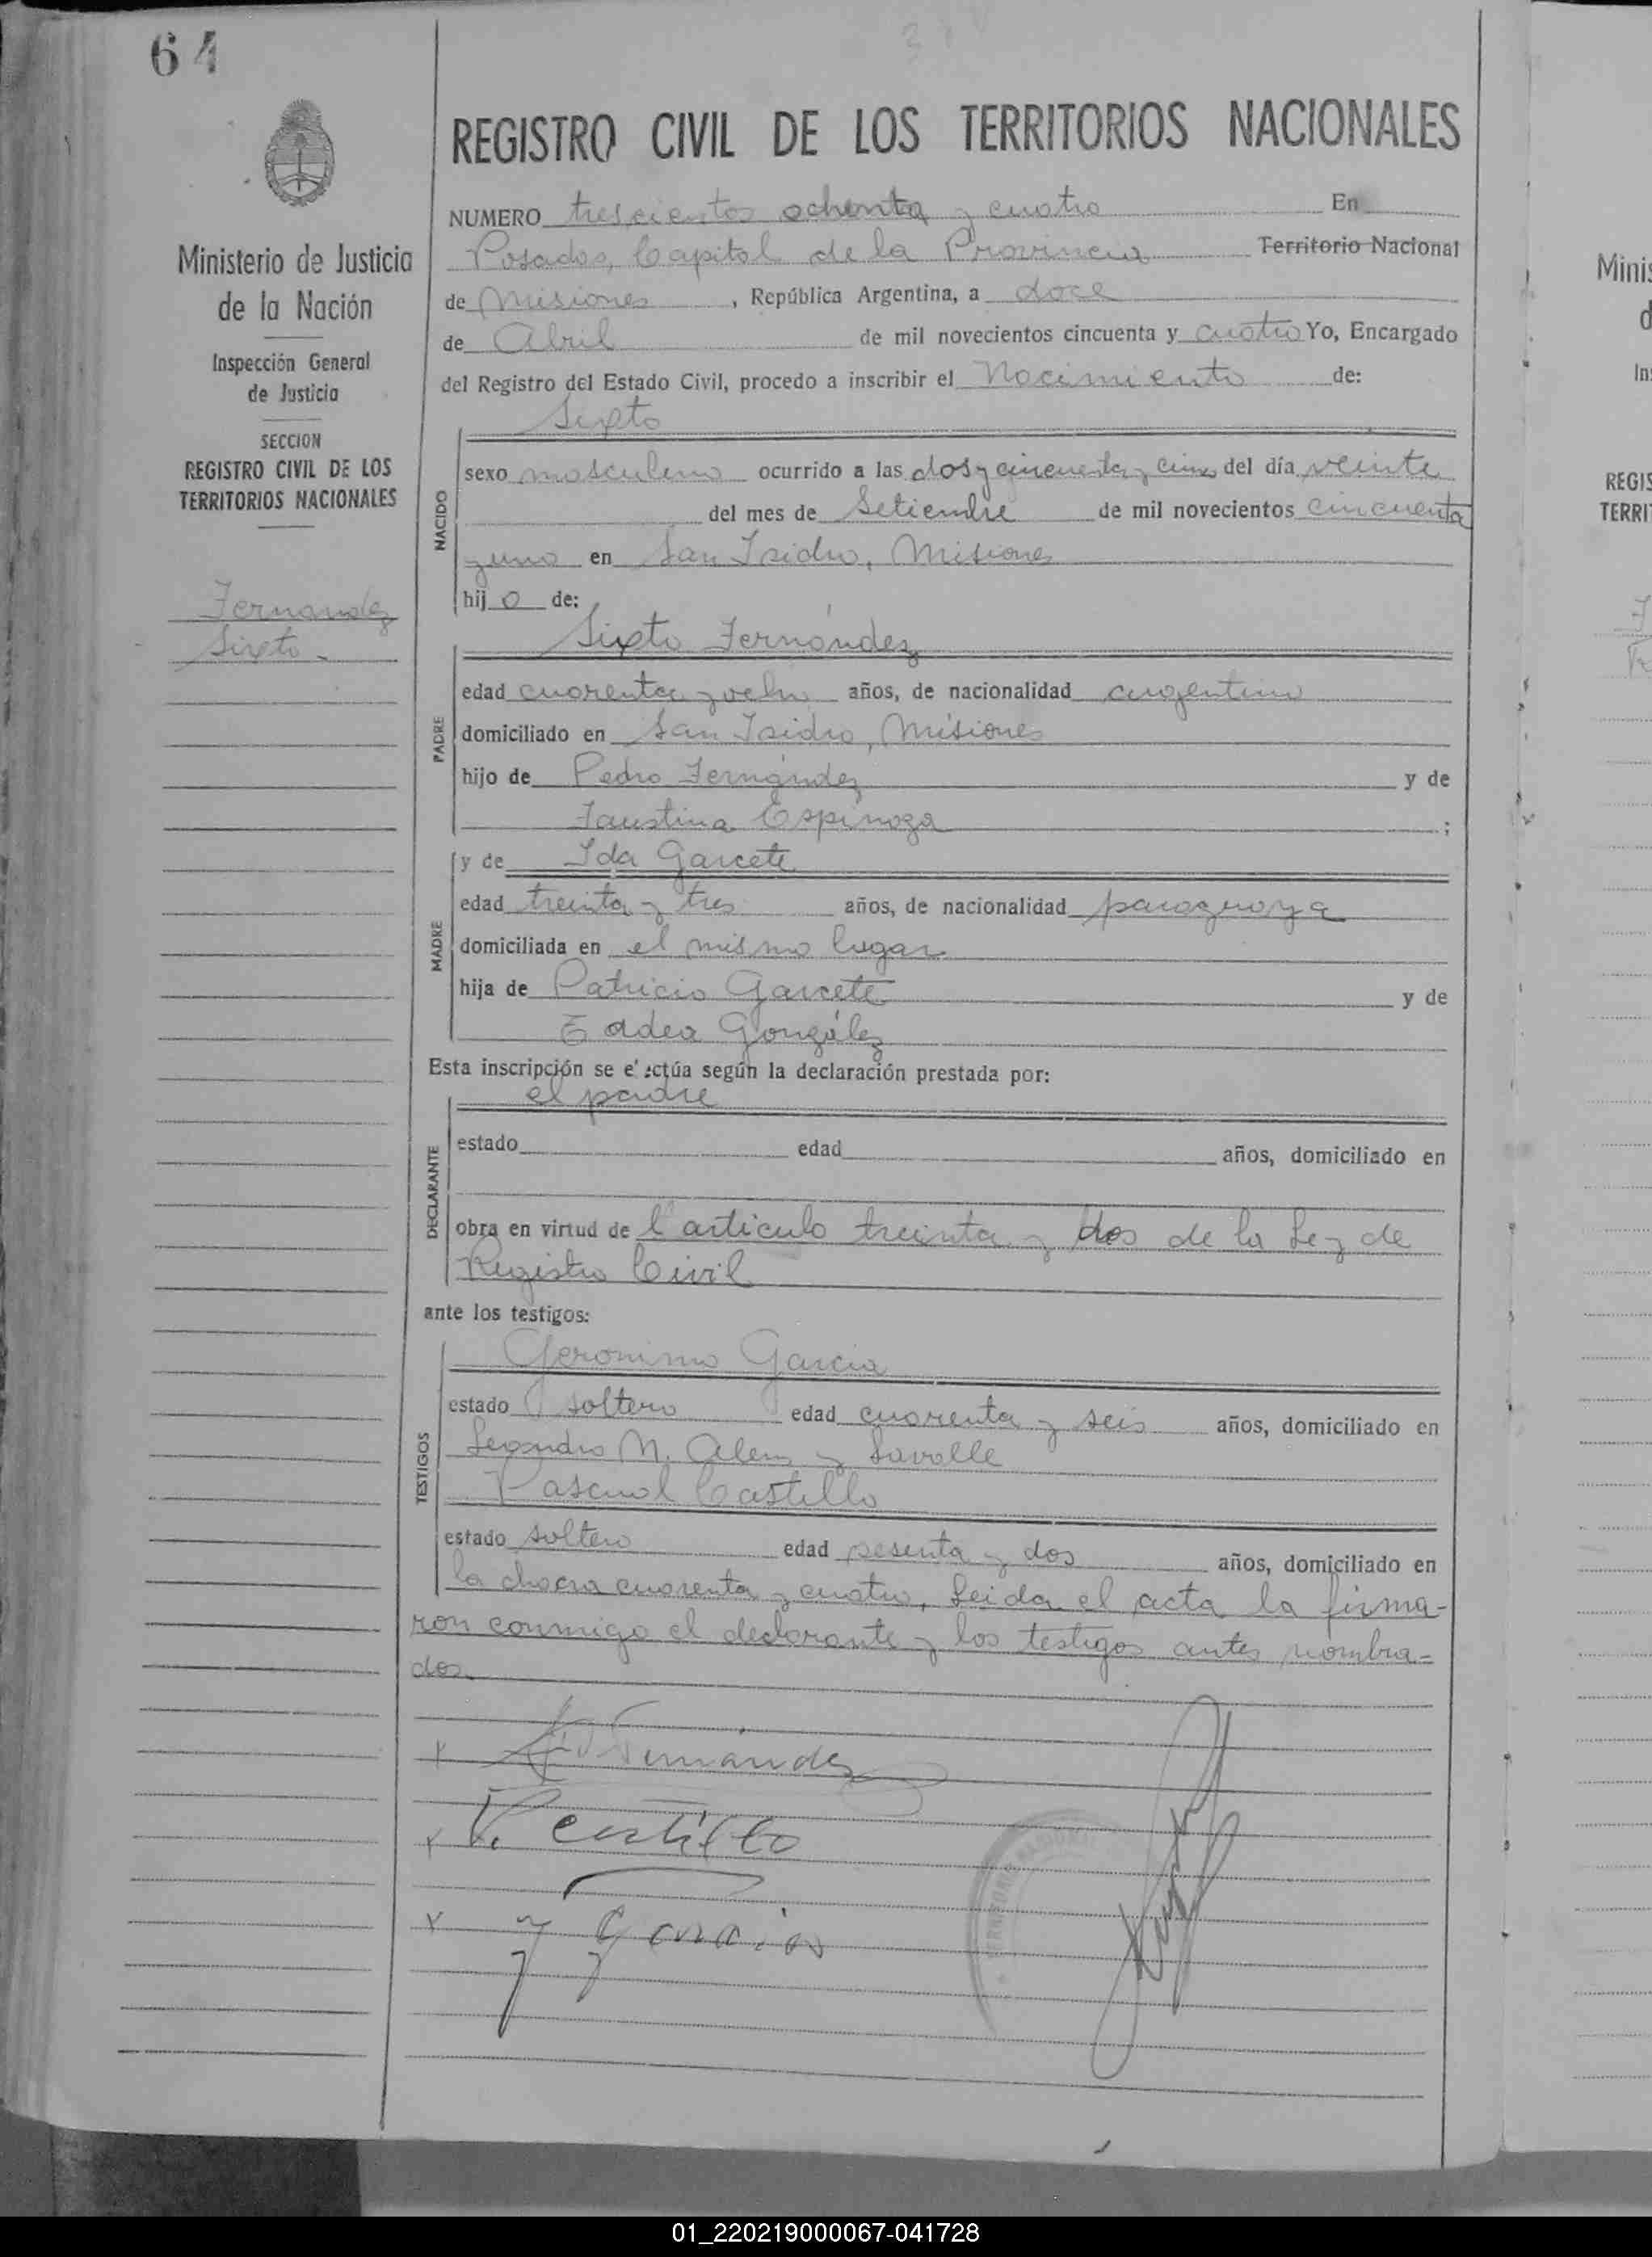 64
REGISTRO CIVIL DE LOS TERRITORIOS NACIONALES
Ministerio de Justicia
de la Nación
Inspección General
de Justicia
SECCION
REGISTRO CIVIL DE LOS
TERRITORIOS NACIONALES
Fernandez
Sixto.
NUMERO trescientos ochenta y cuatro En
Posadas, Capital de la Provincia Territorio Nacional
de Misiones, República Argentina, a doce
de Abril de mil novecientos cincuenta y cuatro Yo, Encargado
del Registro del Estado Civil, procedo a inscribir el Nacimiento de:
Sixto
NACIDO
sexo masculino ocurrido a las dos y cincuenta y cinco del día veinte
del mes de Setiembre de mil novecientos cincuenta
y uno en San Isidro, Misiones
hijo de:
Sixto Fernández
PADRE
edad cuarenta y ocho años, de nacionalidad argentino
domiciliado en San Isidro, Misiones
hijo de Pedro Fernández y de
Faustina Espinoza ;
y de Ida Garcete
MADRE
edad treinta y tres años, de nacionalidad paraguaya
domiciliada en el mismo lugar
hija de Patricio Garcete y de
Eadea González
Esta inscripción se e'ectúa según la declaración prestada por:
el padre
DECLARANTE
estado edad años, domiciliado en
obra en virtud de l'articulo treinta y dos de la Ley de
Registro Civil
ante los testigos:
Geronimo Garcia
TESTIGOS
estado soltero edad cuarenta y seis años, domiciliado en
Leandro N. Alem y Lavalle
Pascual Castillo
estado soltero edad sesenta y dos años, domiciliado en
la chacra cuarenta y cuatro, Leida el acta la firma-
ron conmigo el declarante y los testigos antes nombra-
dos.
Fernández
P. Castillo
J Garcia
01_220219000067-041728